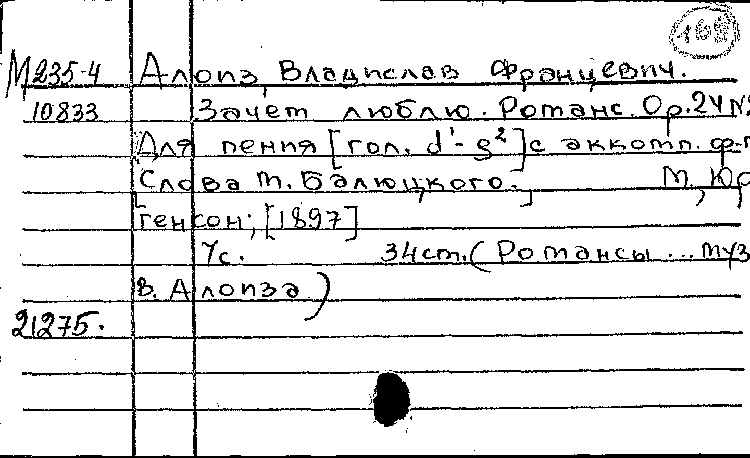 168
М235-4 Алоиз, Владислав Францевич.
10833 Зачем люблю. Романс. Ор.24 №
Для пения [гол. d'-g²] с аккомп. ф-п
Слова М. Балюцкого. М., Юр
генсон, [1897]
7с. 34см. (Романсы ... муз
В. Алоиза)
21275.